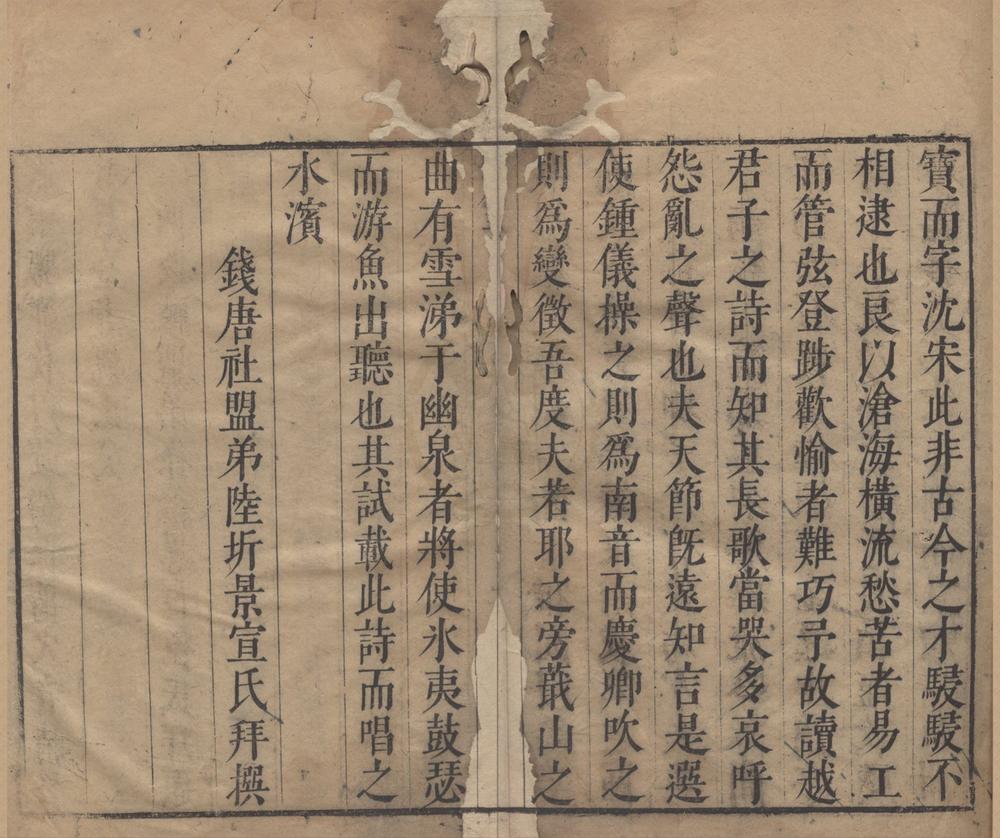 寶而字沈宋此非古今之才駸駸不
相逮也良以滄海橫流愁苦者易工
而管弦登踄歡愉者難巧予故讀越
君子之詩而知其長歌當哭多哀呼
怨亂之聲也夫天節旣遠知言是選
使鍾儀操之則爲南音而慶卿吹之
則爲變徵吾度夫若耶之旁蕺山之
曲有雪涕于幽泉者將使氷夷鼓瑟
而游魚出聽也其試載此詩而唱之
水濱
錢唐社盟弟陸圻景宣氏拜撰